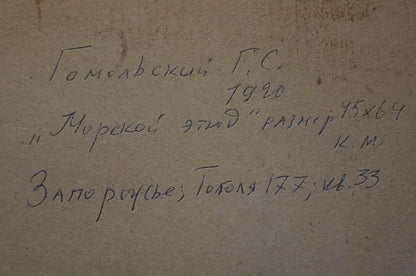 Гомольский Г.С.
1990
„Морской этюд" размер 45х64
К.М.
Запорожье; Гоголя 177; кв. 33